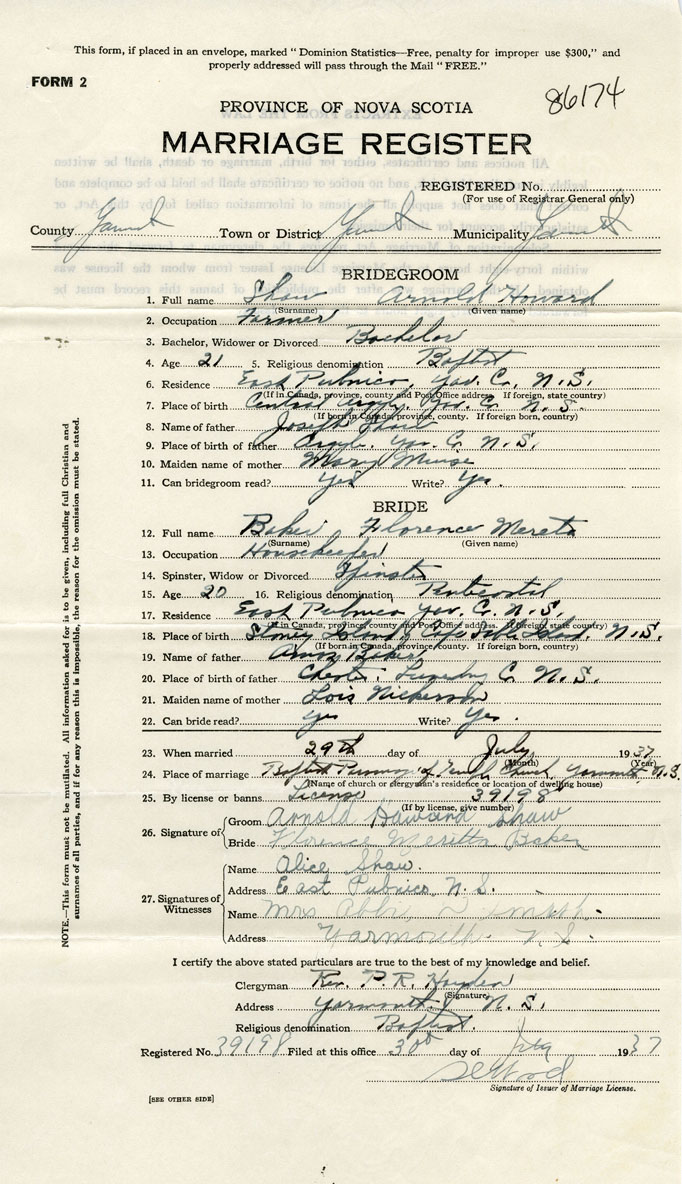 This form, if placed in an envelope, marked "Dominion Statistics—Free, penalty for improper use $300," and
properly addressed will pass through the Mail "FREE."
FORM 2
86174
PROVINCE OF NOVA SCOTIA
MARRIAGE REGISTER
REGISTERED No.
(For use of Registrar General only)
County Town or District Municipality
BRIDEGROOM
1. Full name Shaw Arnold Howard
(Surname) (Given name)
2. Occupation Farmer
3. Bachelor, Widower or Divorced Bachelor
4. Age 21 5. Religious denomination Baptist
6. Residence East Pubnico, Yar. Co. N.S.
(If in Canada, province, county and Post Office address. If foreign, state country)
7. Place of birth Central Argyle, Yar. Co. N.S.
(If born in Canada, province, county. If foreign born, country)
8. Name of father Joseph Shaw
9. Place of birth of father Argyle, Yar. Co. N.S.
10. Maiden name of mother Mary Muise
11. Can bridegroom read? Yes Write? Yes.
BRIDE
12. Full name Baker Florence Mereta
(Surname) (Given name)
13. Occupation Housekeeper
14. Spinster, Widow or Divorced Spinster
15. Age 20 16. Religious denomination Pentecostal
17. Residence East Pubnico Yar. Co. N.S.
(If in Canada, province, county and Post Office address. If foreign state country)
18. Place of birth Stoney Island, Cape Sable Island, N.S.
(If born in Canada, province, county. If foreign born, country)
19. Name of father Amos Baker
20. Place of birth of father Chester, Co. N.S.
21. Maiden name of mother Lois Nickerson
22. Can bride read? yes Write? Yes.
23. When married 29th day of July 1937
(Month) (Year)
24. Place of marriage Baptist Church, Yarmouth N.S.
(Name of church or clergyman's residence or location of dwelling house)
25. By license or banns License 39198
(If by license, give number)
26. Signature of
Groom Arnold Howard Shaw
Bride Florence Meretta Baker
27. Signatures of Witnesses
Name Alice Shaw.
Address East Pubnico N.S.
Name Mrs
Address Yarmouth N.S.
I certify the above stated particulars are true to the best of my knowledge and belief.
Clergyman Rev. P. R. Hayden
(Signature)
Address Yarmouth, N.S.
Religious denomination Baptist.
Registered No. 39198 Filed at this office 30th day of 1937
Signature of Issuer of Marriage License.
[SEE OTHER SIDE]
NOTE.—This form must not be mutilated. All information asked for is to be given, including full Christian and
surnames of all parties, and if for any reason this is impossible, the reason for the omission must be stated.